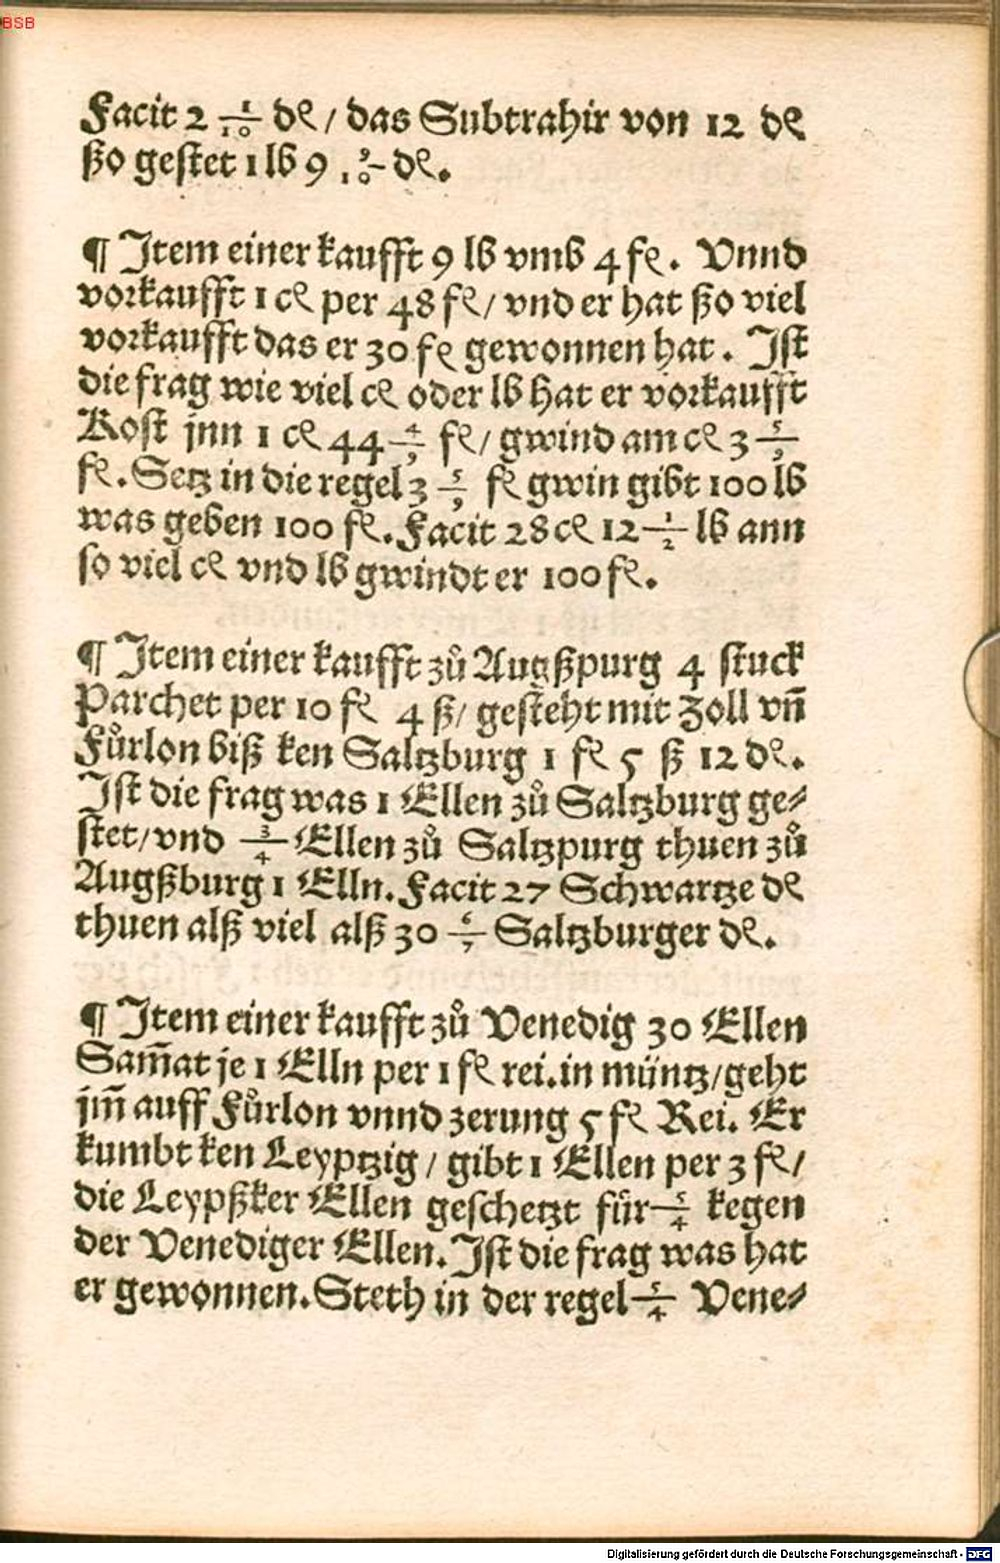 BSB
Facit 2 1/10 de / das Subtrahir von 12 de
ßo gestet 1 lb 9 9/10 de.
¶ Item einer kaufft 9 lb vmb 4 fl. Vnnd
vorkaufft 1 cl per 48 fl / vnd er hat ßo viel
vorkaufft das er 30 fl gewonnen hat. Ist
die frag wie viel cl oder lb hat er vorkaufft
Kost jnn 1 cl 44 4/9 fl / gwind am cl 3 5/9
fl. Setz in die regel 3 5/9 fl gwin gibt 100 lb
was geben 100 fl. Facit 28 cl 12 1/2 lb ann
so viel cl vnd lb gwindt er 100 fl.
¶ Item einer kaufft zů Augßpurg 4 stuck
Parchet per 10 fl 4 ß / gesteht mit Zoll vñ
Fůrlon biß ken Saltzburg 1 fl 5 ß 12 de.
Ist die frag was 1 Ellen zů Saltzburg ge⸗
stet / vnd 3/4 Ellen zů Saltzpurg thuen zů
Augßburg 1 Elln. Facit 27 Schwartze de
thuen alß viel alß 30 6/7 Saltzburger de.
¶ Item einer kaufft zů Venedig 30 Ellen
Sam̃at je 1 Elln per 1 fl rei. in müntz / geht
jm̃ auff Fůrlon vnnd zerung 5 fl Rei. Er
kumbt ken Leyptzig / gibt 1 Ellen per 3 fl /
die Leypßker Ellen geschetzt für 5/4 kegen
der Venediger Ellen. Ist die frag was hat
er gewonnen. Steth in der regel 5/4 Vene⸗
Digitalisierung gefördert durch die Deutsche Forschungsgemeinschaft - DFG